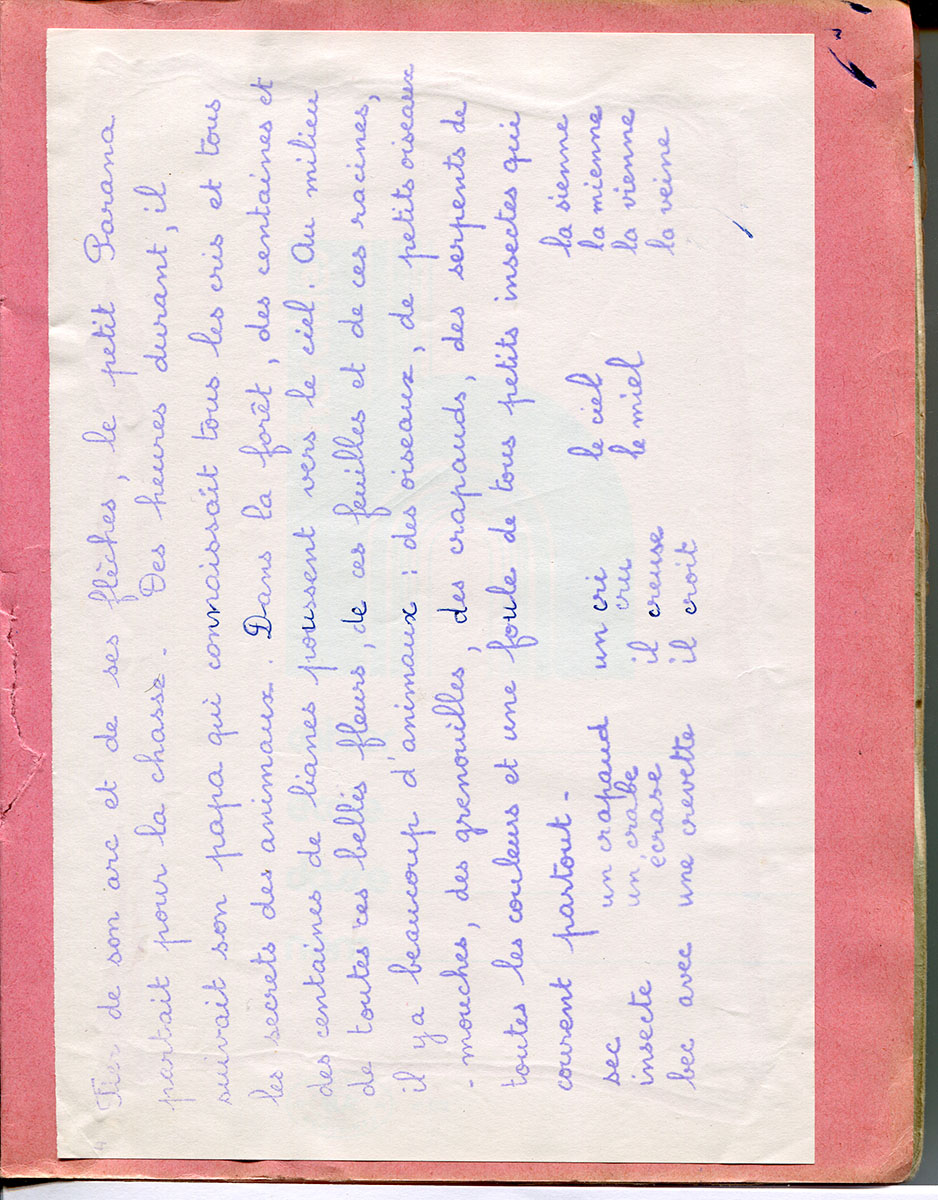 Fier de son arc et de ses flèches, le petit Parana
partait pour la chasse. Des heures durant, il
suivait son papa qui connaissait tous les cris et tous
les secrets des animaux. Dans la forêt, des centaines et
des centaines de lianes poussent vers le ciel. Au milieu
de toutes ces belles fleurs, de ces feuilles et de ces racines,
il y a beaucoup d'animaux : des oiseaux, de petits oiseaux
- mouches, des grenouilles, des crapauds, des serpents de
toutes les couleurs et une foule de tous petits insectes qui
courent partout -
sec un crapaud un cri le ciel la sienne
insecte un crabe cru le miel la mienne
écrase il creuse la vienne
bec avec une crevette il croit la veine